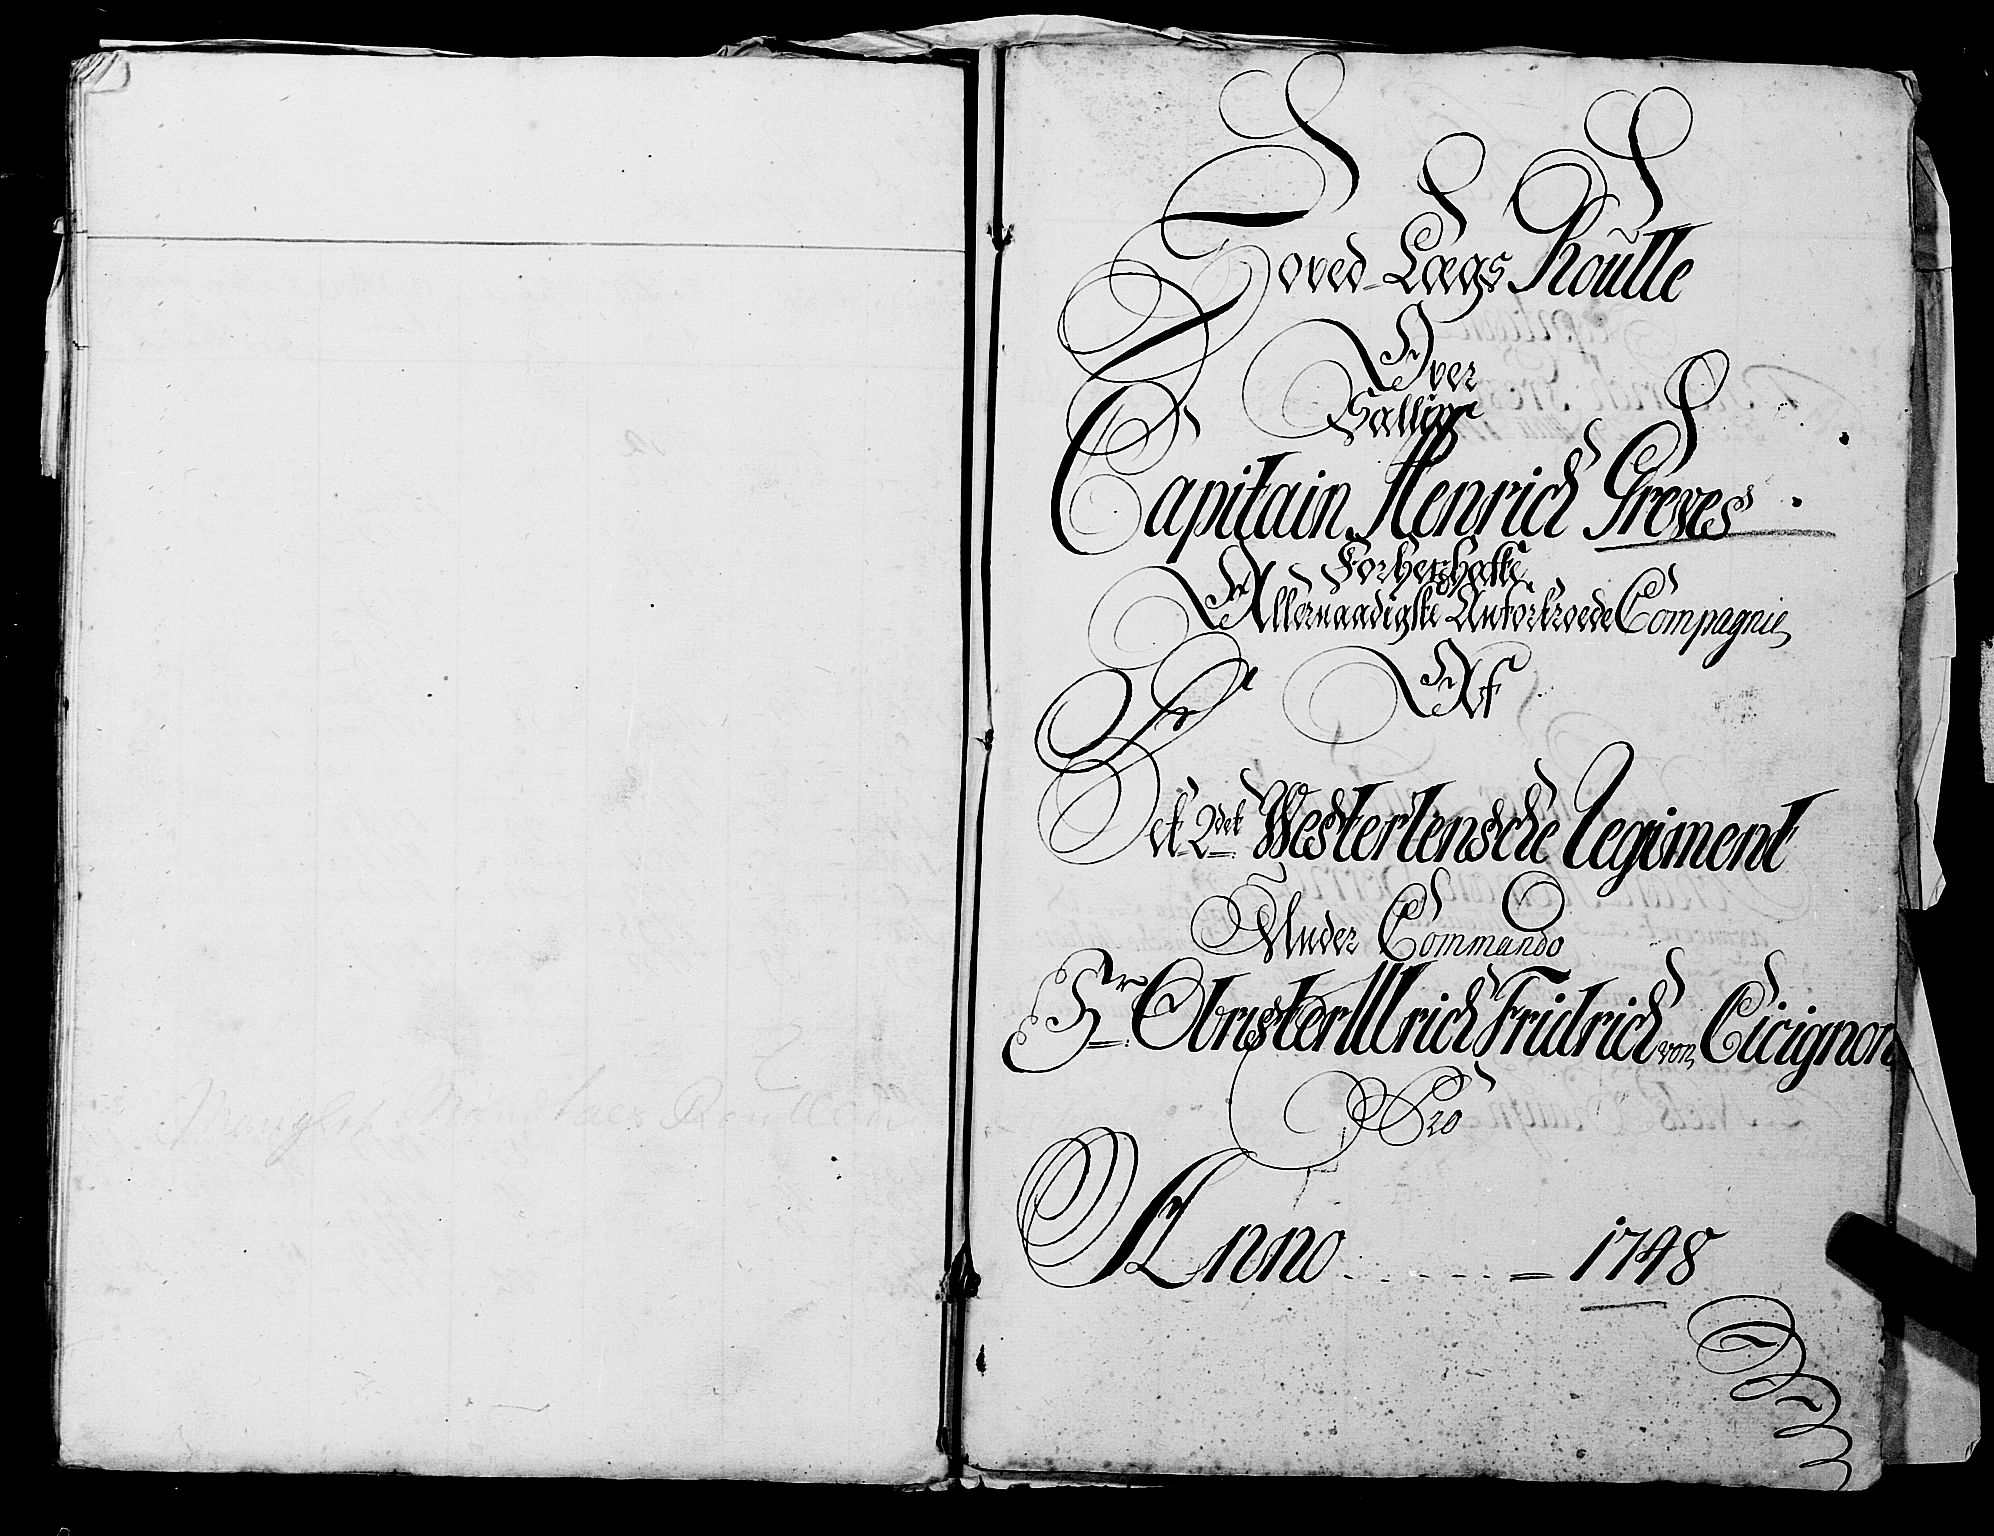 Hoved-Lægs Roulle
Over
Sallig
Capitain Henrich Greves
Forherhafte
Allernaadigste Anfortroede Compagnie
Af
Det 2det Westerlensche Regiment
Under Commando
Hr: Obrister Ulrich Fridrich von Cicignon
Pro
Anno - - - - - = 1748